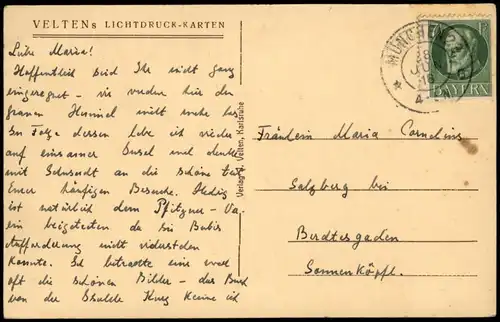 VELTENs LICHTDRUCK-KARTEN
Liebe Maria!
Hoffentlich seid Ihr nicht ganz
eingeregnet - wir werden hier den
grauen Himmel nicht mehr los.
In Folge dessen lebe ich wieder
auf einsamer Insel und denke
mit Sehnsucht an die schöne Zeit
Eurer häufigen Besuche. Hedwig
ist natürlich dem Pfitzner-Ver-
ein beigetreten da sie
Aufforderung nicht widerstehen
konnte. Ich betrachte eine
oft die schönen Bilder - das Buch
von der
Verlag J. Velten, Karlsruhe
MÜNCHEN
BAYERN
Fräulein Maria Cornelius
Salzberg bei
Berchtesgaden
Sonnenköpfl.